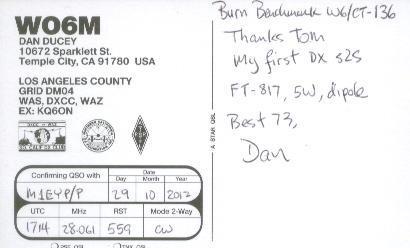 WO6M
DAN DUCEY
10672 Sparklett St.
Temple City, CA 91780 USA
LOS ANGELES COUNTY
GRID DM04
WAS, DXCC, WAZ
EX: KQ6ON
Confirming QSO with
Date
Day
Month
Year
M1EYP/P
29
10
2012
UTC
MHz
RST
Mode 2-Way
1714
28.061
559
CW
PSE QSL
TNX QSL
A STAR QSL
Burn Benchmark W6/CT-136
Thanks Tom
My first DX S2S
FT-817, 5W, dipole
Best 73,
Dan